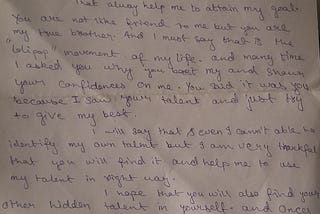 That always help me to attain my goal.
You are not like friend to me but you are
my true brother. And I must say that is the
"lolipop" movement of my life. and many time
I asked you why you boost my and shown
your confidences on me. You said it was you
because I saw your talent and just try
to give my best.
I will say that I even cann't able to
identify my own talent but I am very thankful
that you will find it and help me to use
my talent in right way.
I hope that you will also find your
other hidden talent in yourself. and once